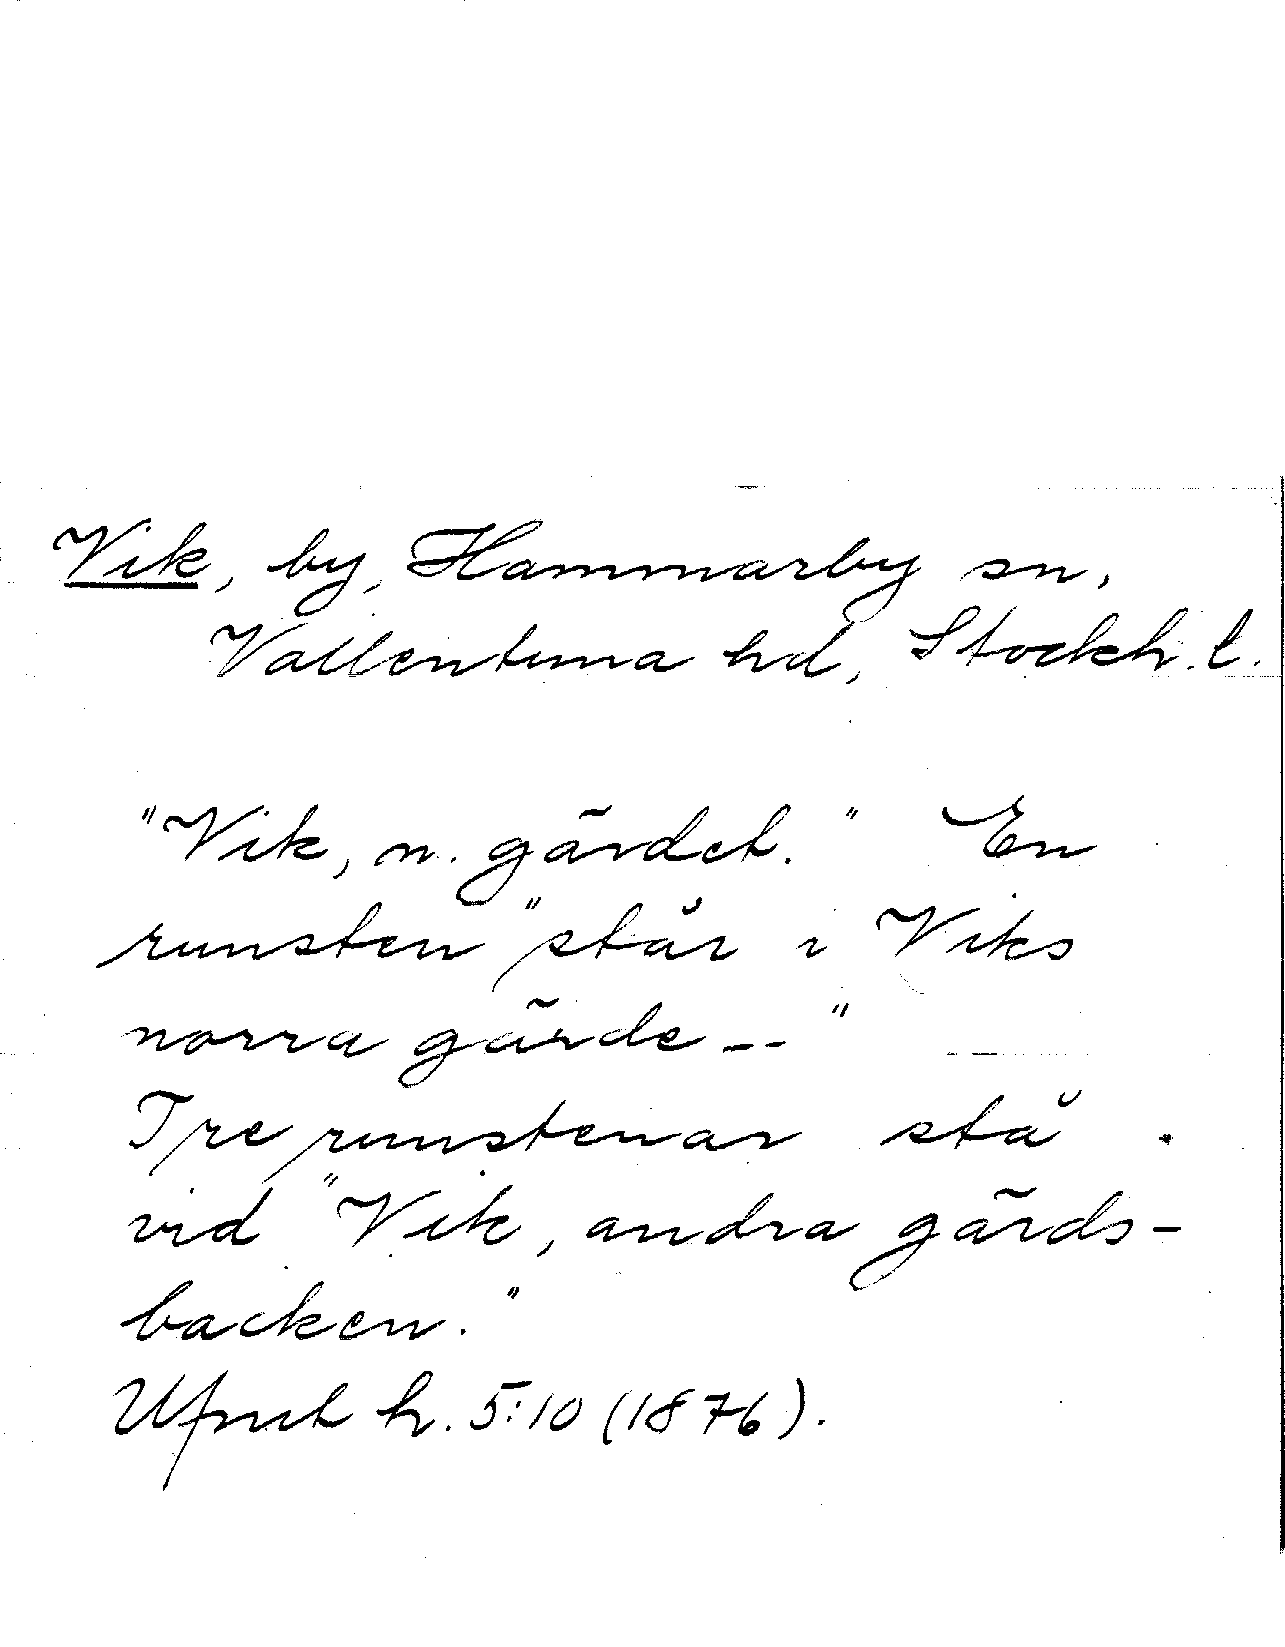 Vik, by, Hammarby sn,
Vallentuna hd, Stockh. l.
"Vik, n. gärdet." En
runsten "står i Viks
norra gärde --"
Tre runstenar stå
vid "Vik, andra gärds-
backen."
Ufmt h. 5:10 (1876).